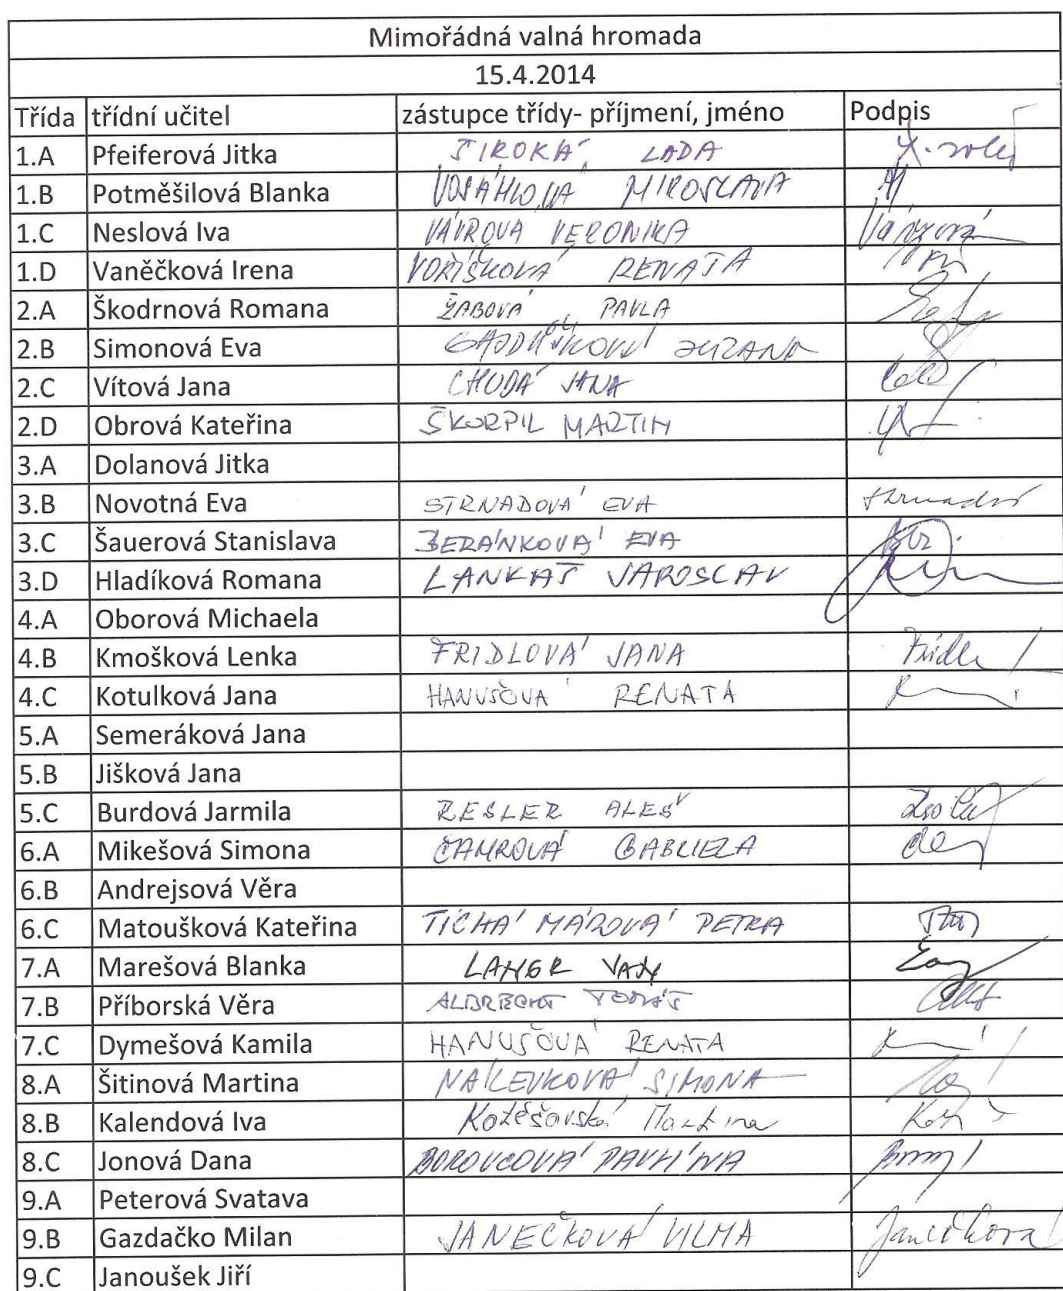 Mimořádná valná hromada
15.4.2014
Třída třídní učitel zástupce třídy- příjmení, jméno Podpis
1.A Pfeiferová Jitka ŠIROKÁ LADA
1.B Potměšilová Blanka VOSÁHLOVÁ MIROSLAVA
1.C Neslová Iva VÁVROVÁ VERONIKA
1.D Vaněčková Irena VOŘÍŠKOVÁ RENATA
2.A Škodrnová Romana ŽABOVÁ PAVLA
2.B Simonová Eva ZUZANA
2.C Vítová Jana CHUDÁ JANA
2.D Obrová Kateřina ŠKORPIL MARTIN
3.A Dolanová Jitka
3.B Novotná Eva STRNADOVÁ EVA
3.C Šauerová Stanislava BERÁNKOVÁ EVA
3.D Hladíková Romana LANKAŠ JAROSLAV
4.A Oborová Michaela
4.B Kmošková Lenka FRIDLOVÁ JANA
4.C Kotulková Jana HANUŠOVÁ RENATA
5.A Semeráková Jana
5.B Jišková Jana
5.C Burdová Jarmila RESLER ALEŠ
6.A Mikešová Simona ČAMROVÁ GABRIELA
6.B Andrejsová Věra
6.C Matoušková Kateřina TICHÁ MÁROVÁ PETRA
7.A Marešová Blanka LANGR JAN
7.B Příborská Věra ALBRECHT TOMÁŠ
7.C Dymešová Kamila HANUŠOVÁ RENATA
8.A Šitinová Martina SIMONA
8.B Kalendová Iva Martina
8.C Jonová Dana BOROVCOVÁ PAVLÍNA
9.A Peterová Svatava
9.B Gazdačko Milan JANEČKOVÁ VILMA Janečková
9.C Janoušek Jiří